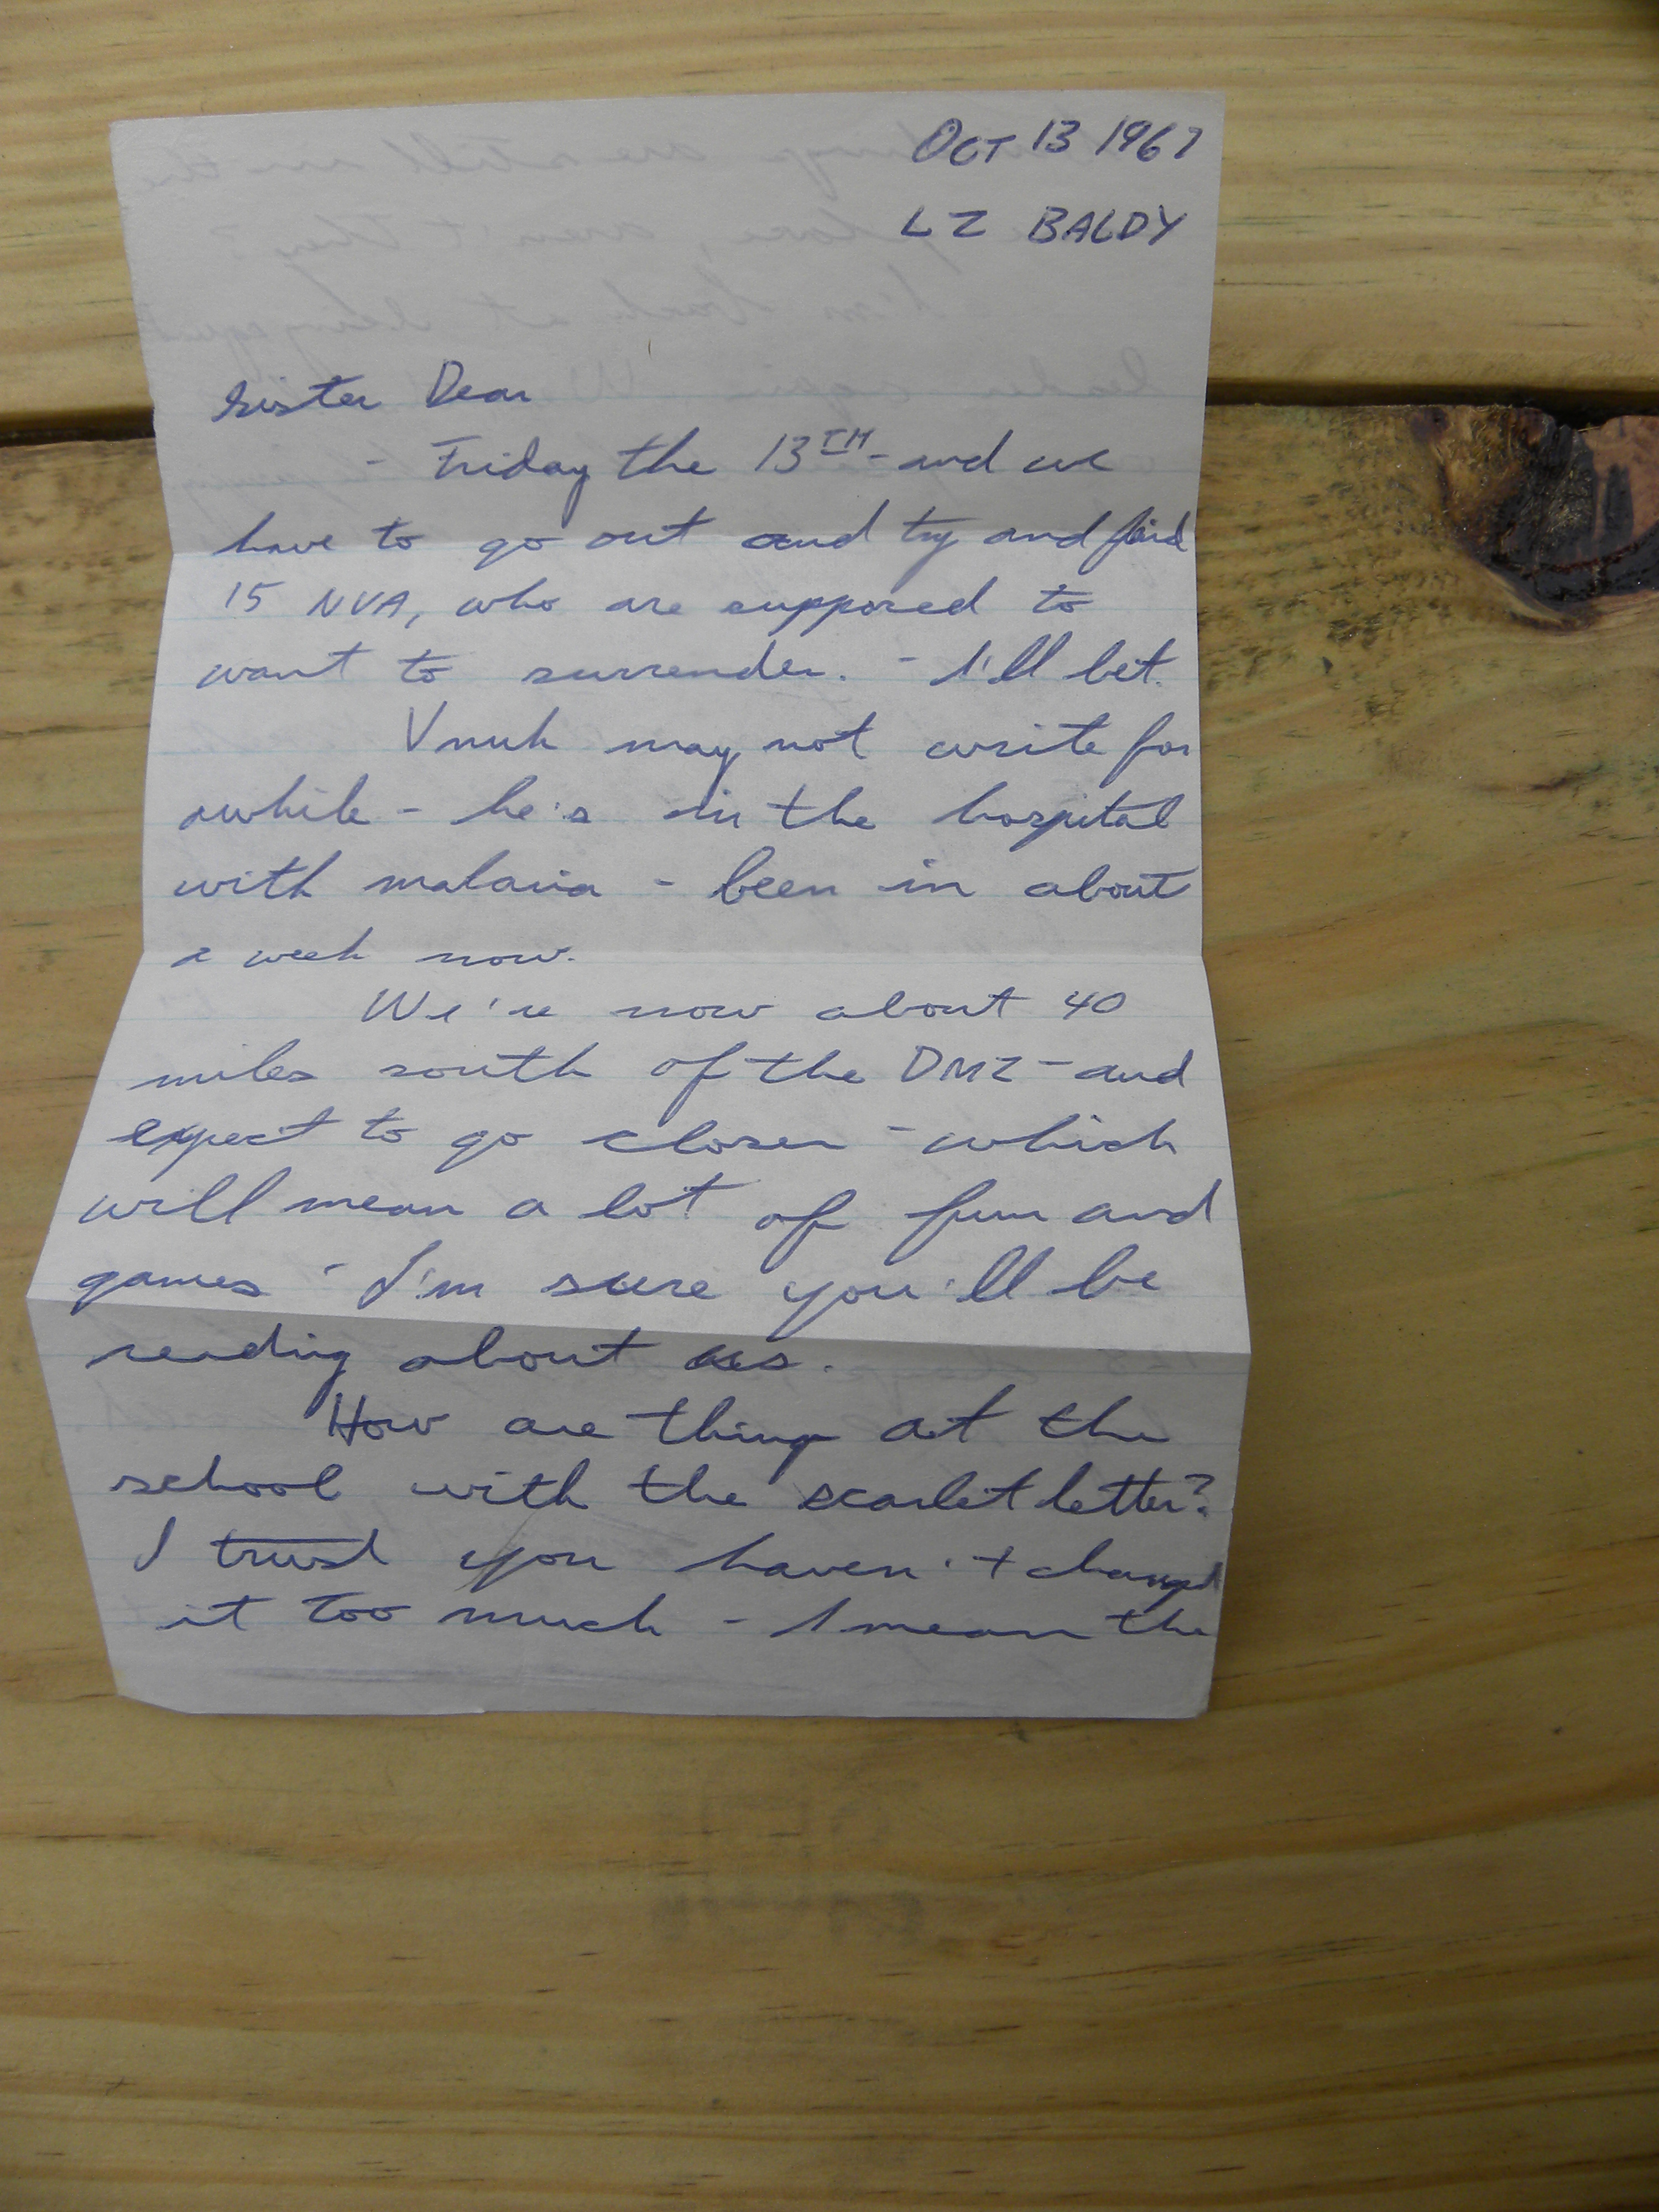 OCT 13 1967
LZ BALDY
Sister Dear
- Friday the 13TH - and we
have to go out and try and find
15 NVA, who are supposed to
want to surrender. - I'll bet.
Vnuk may not write for
awhile - he's in the hospital
with malaria - been in about
a week now.
We're now about 40
miles south of the DMZ - and
expect to go closer - which
will mean a lot of fun and
games - I'm sure you'll be
reading about us.
How are things at the
school with the scarlet letter?
I trust you haven't changed
it too much - I mean the